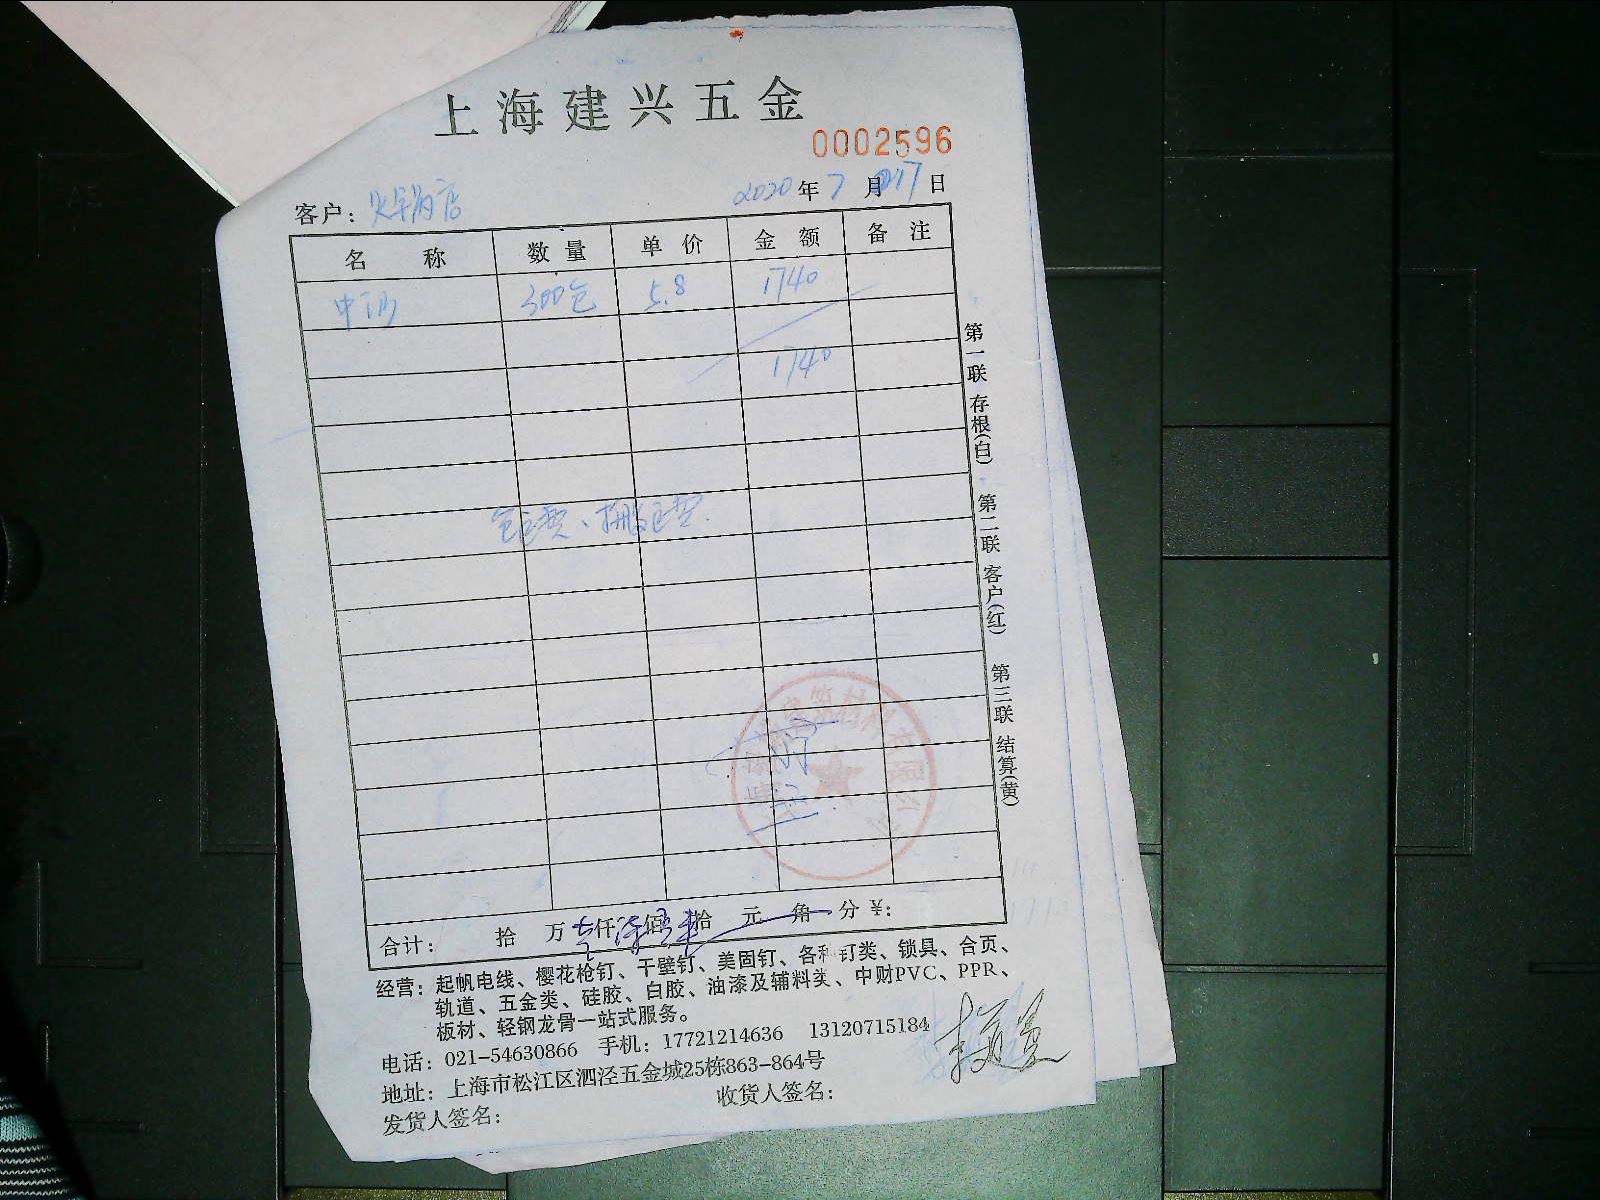 上海建兴五金
0002596
客户：火锅店 2020年7月17日
名称 数量 单价 金额 备注
中沙 300包 5.8 1740
1740
合计： 拾 万 仟 佰 拾 元 角 分 ¥：
经营：起帆电线、樱花枪钉、干壁钉、美固钉、各种钉类、锁具、合页、
轨道、五金类、硅胶、白胶、油漆及辅料类、中财PVC、PPR、
板材、轻钢龙骨一站式服务。
电话：021-54630866 手机：17721214636 13120715184
地址：上海市松江区泗泾五金城25栋863-864号
发货人签名： 收货人签名：
第一联 存根(白) 第二联 客户(红) 第三联 结算(黄)